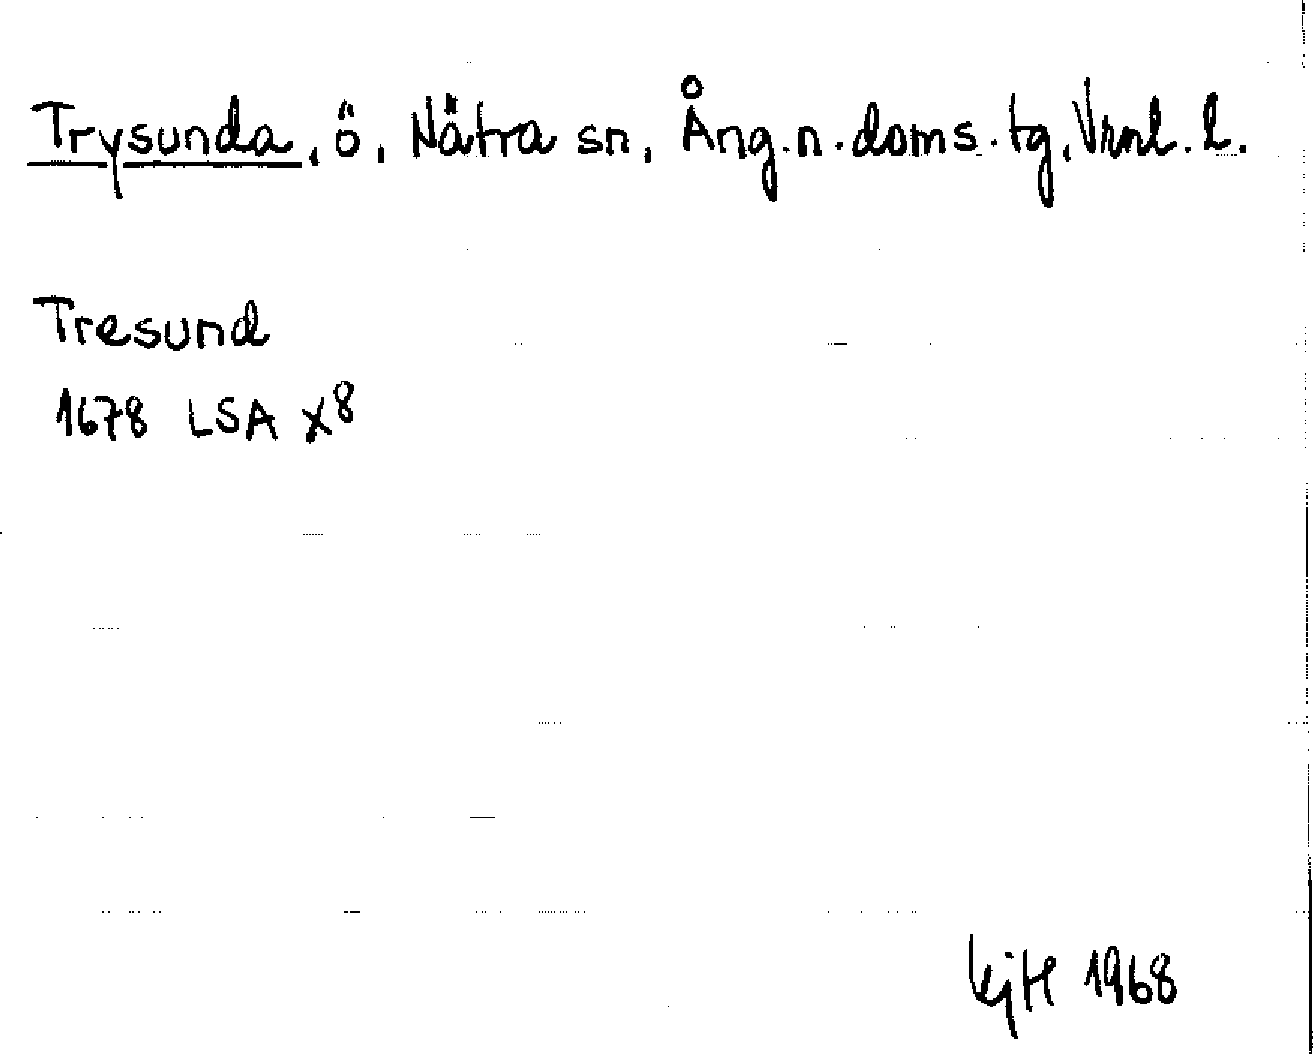 Trysunda, ö, Nätra sn, Ång.n.doms.tg, Vrnl. l.
Tresund
1678 LSA X8
kjH 1968